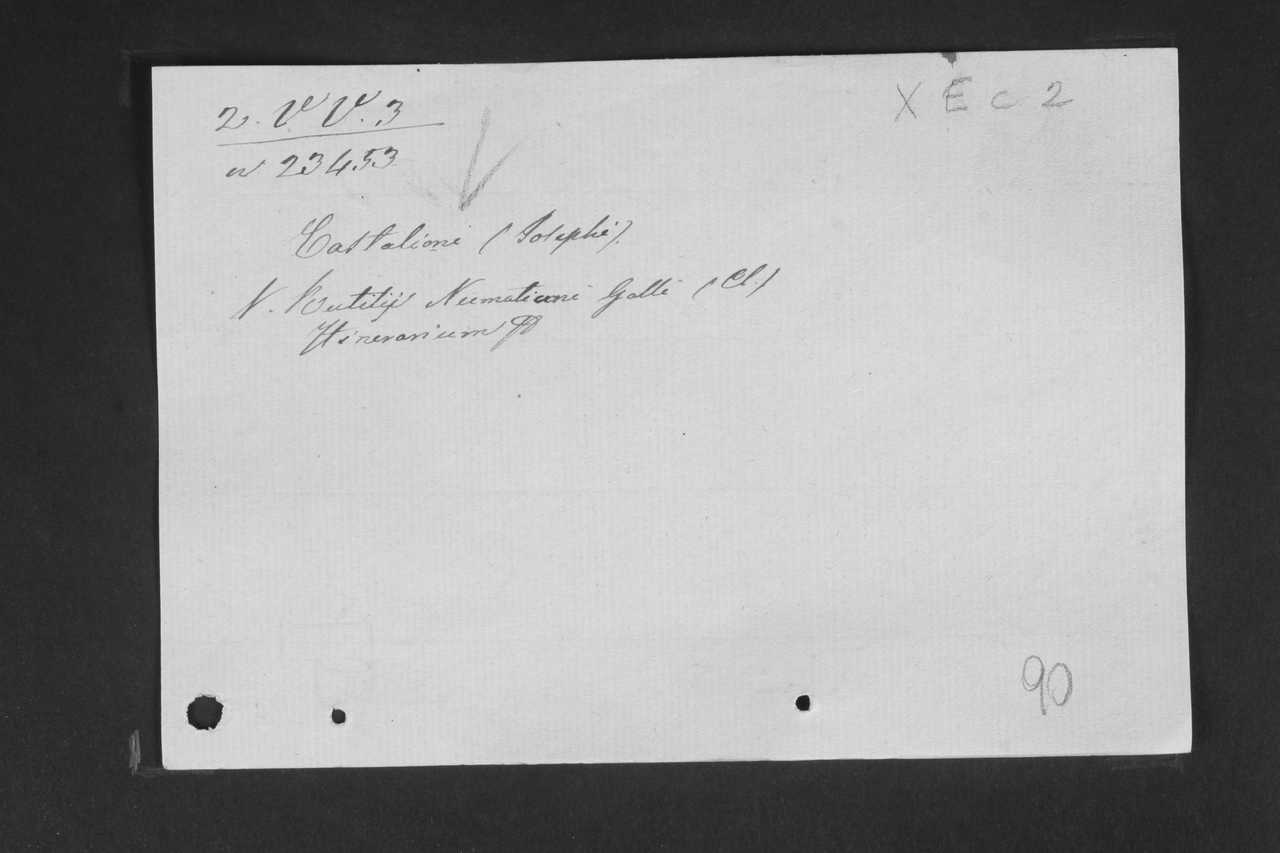 2. V V. 3
X E c 2
n 23453
Castalioni (Josephi).
V. Rutilij Numatiani Galli (Cl.)
Itinerarium
90